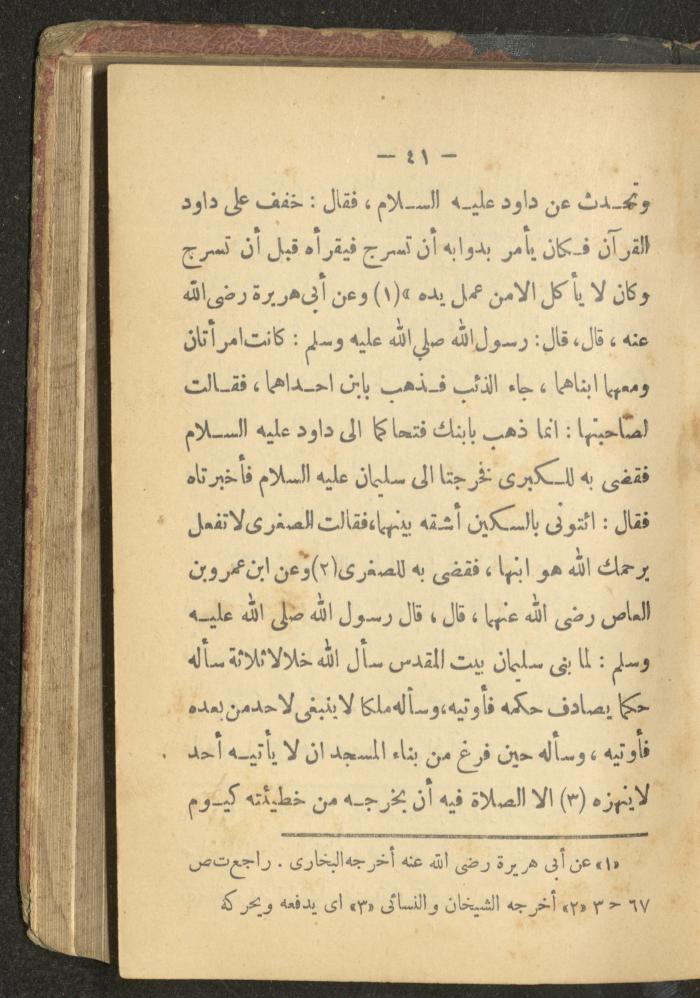 — ٤١ —
وتحدث عن داود عليه السلام ، فقال : خفف على داود
القرآن فكان يأمر بدوابه أن تسرج فيقرأه قبل أن تسرج
وكان لا يأكل الا من عمل يده »(١) وعن أبى هريرة رضى الله
عنه ، قال، قال: رسول الله صلي الله عليه وسلم : كانت امرأتان
ومعهما ابناهما ، جاء الذئب فذهب بابن احداهما ، فقالت
لصاحبتها : انما ذهب بابنك فتحاكما الى داود عليه السلام
فقضى به للكبرى فخرجتا الى سليمان عليه السلام فأخبرتاه
فقال : ائتونى بالسكين أشقه بينهما،فقالت الصغرى لا تفعل
يرحمك الله هو ابنها ، فقضى به للصغرى(٢)وعن ابن عمرو بن
العاص رضى الله عنهما ، قال ، قال رسول الله صلى الله عليه
وسلم : لما بنى سليمان بيت المقدس سأل الله خلالا ثلاثة سأله
حكما يصادف حكمه فأوتيه،وسأله ملكا لا ينبغى لاحد من بعده
فأوتيه ، وسأله حين فرغ من بناء المسجد ان لا يأتيه أحد
لا ينهزه (٣) الا الصلاة فيه أن يخرجه من خطيئته كيوم
«١» عن أبى هريرة رضى الله عنه أخرجه البخارى . راجع ت ص
٦٧ ح ٣ «٢» أخرجه الشيخان والنسائى «٣» اى يدفعه ويحركه